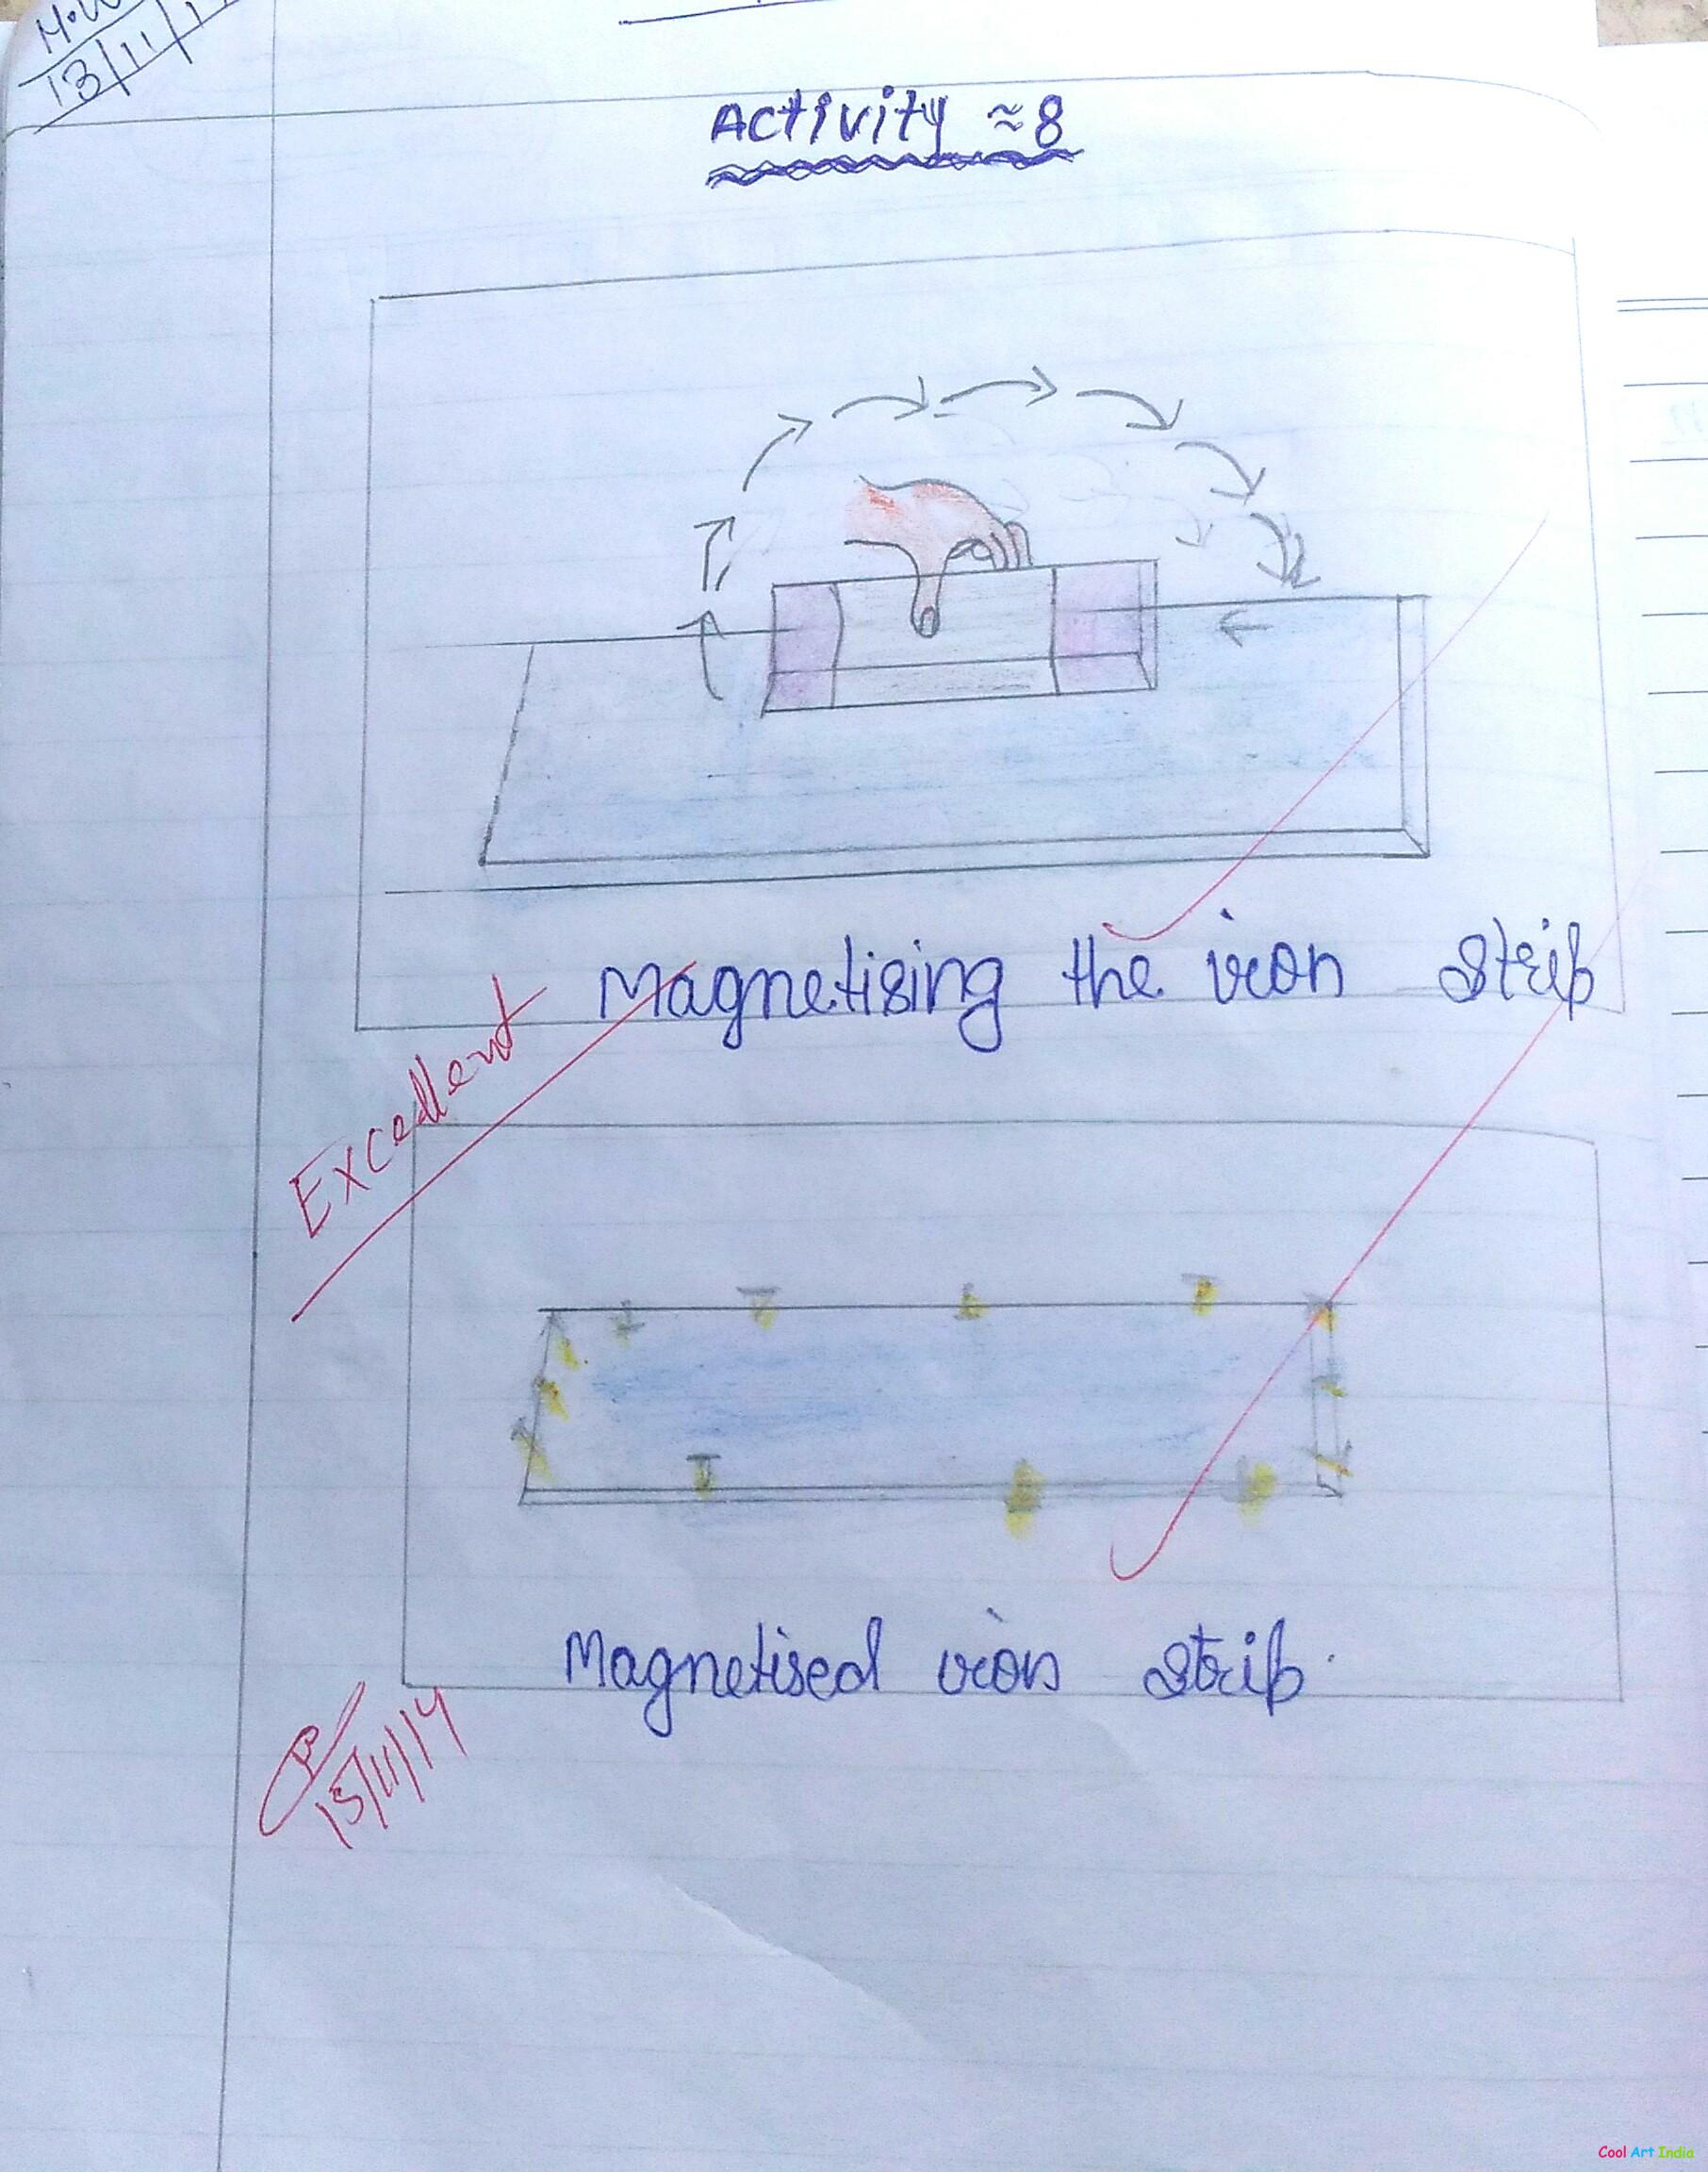 13/11/1
Activity ≈ 8
Magnetising the iron strip
Excellent
Magnetised iron strip.
15/11/14
Cool Art India